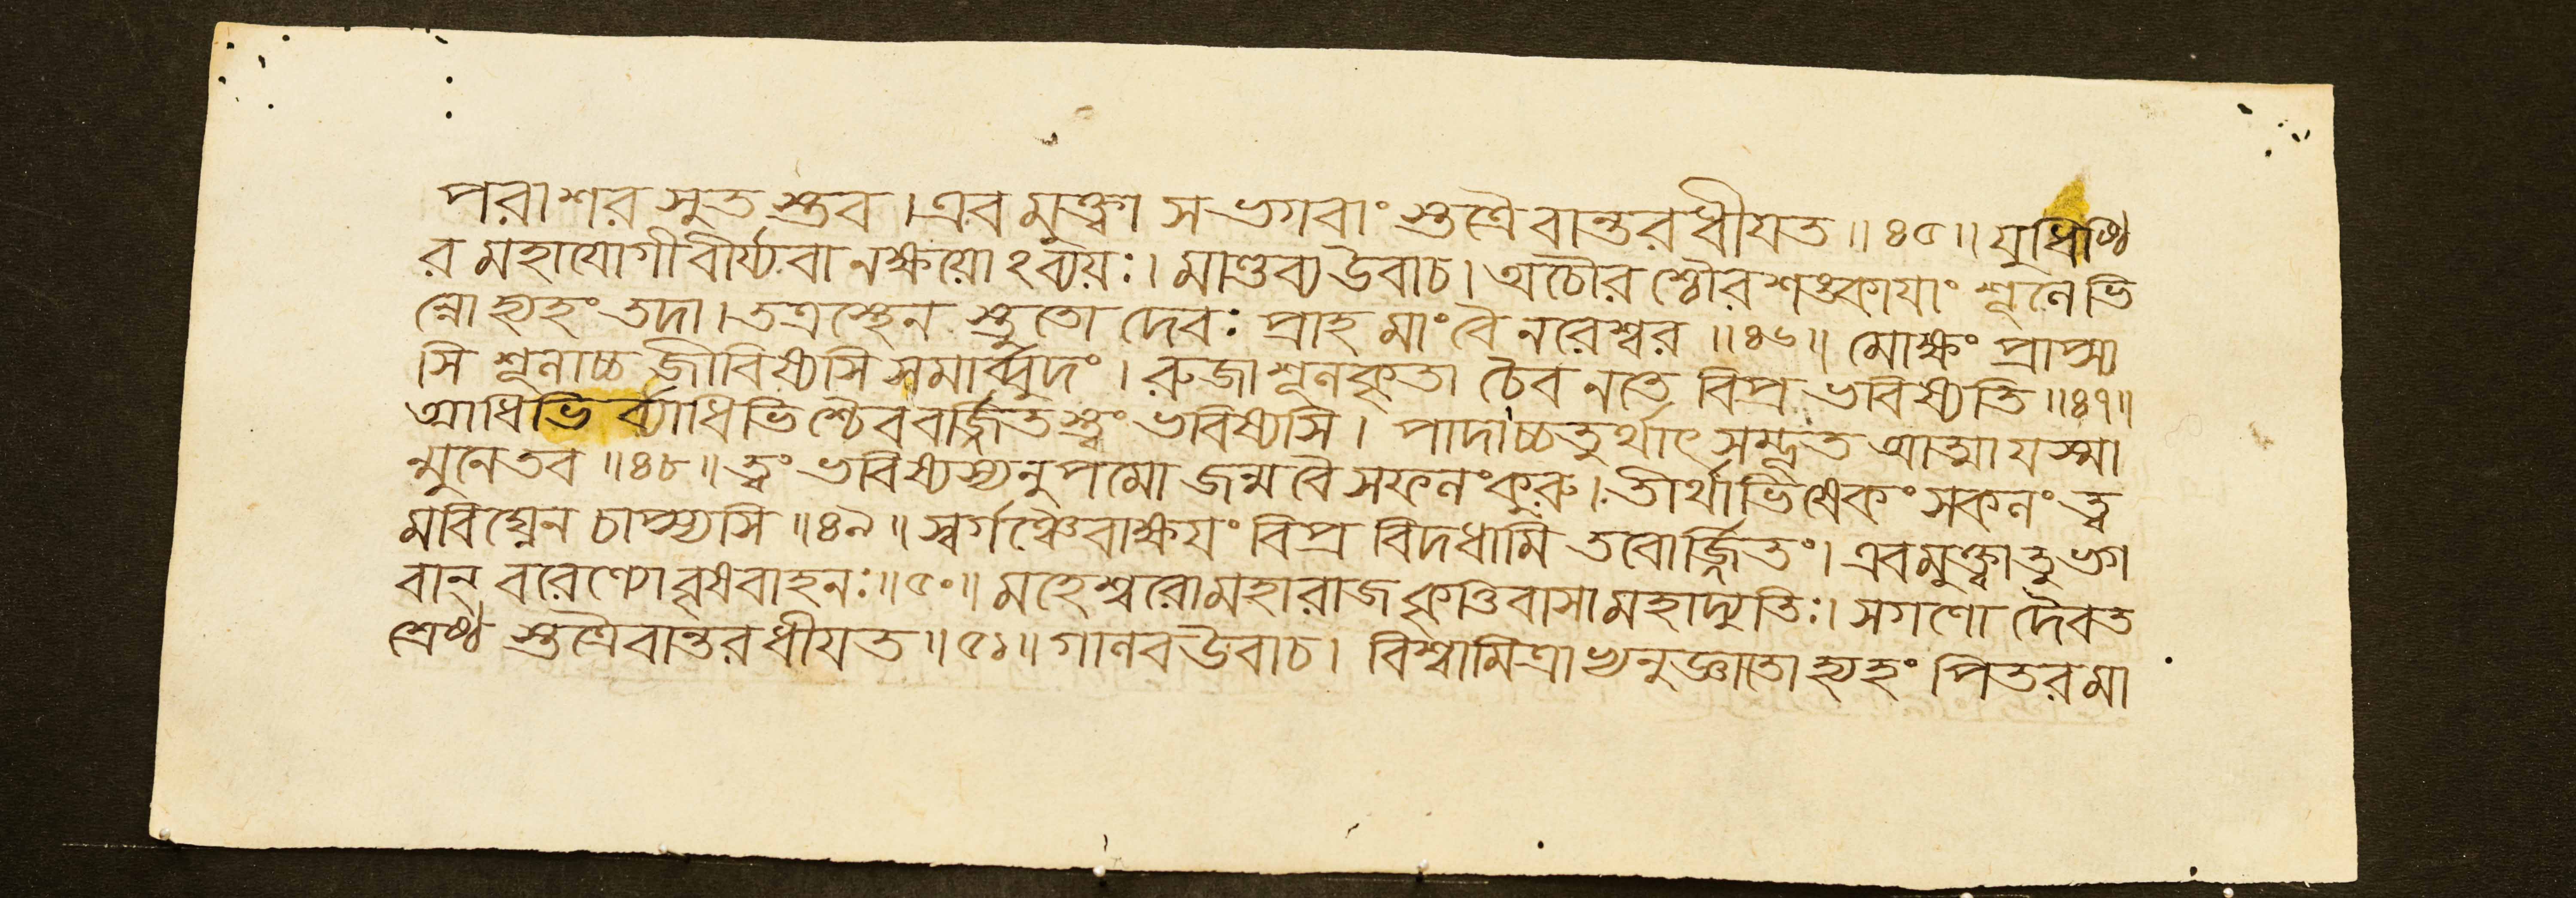 পরাশরসুতস্তব।এবমুক্ত্বা স ভগবাংস্তত্রৈবান্তরধীযত॥৪৫॥যুধিষ্ঠি
র মহাযোগীবীর্য্যবানক্ষয়োঽব্যয়ঃ। মাণ্ডব্যউবাচ।অচৌরশ্চৌরশঙ্কাযাং শূলেভি
ন্নোহ্যহং তদা।তত্রস্থেন স্তুতো দেবঃ প্রাহ মাং বৈ নরেশ্বর॥৪৬॥মোক্ষং প্রাপ্স্য
সি শূলাচ্চ জীবিষ্যসি সমার্ব্বুদং। রুজা শূলকৃতা চৈব নতে বিপ্র ভবিষ্যতি॥৪৭॥
আধিভির্ব্যাধিভিশ্চৈববর্জ্জিতস্ত্বং ভবিষ্যসি। পাদাচ্চতুর্থাৎ সম্ভূত আত্মা যস্মা
ন্মুনেতব॥৪৮॥ত্বং ভবিষ্যস্যনুপমো জন্ম বৈ সফলংকুরু।তীর্থাভিষেকং সকলং ত্ব
মবিঘ্নেন চাপ্স্যসি॥৪৯॥স্বর্গঞ্চৈবাক্ষযং বিপ্র বিদধামি তবোর্জ্জিতং।এবমুক্ত্বাতুভগ
বান্ বরেণ্যোবৃষবাহনঃ॥৫০॥মহেশ্বরোমহারাজকৃত্তিবাসামহাদ্যুতিঃ।সগণো দৈবত
শ্রেষ্ঠস্তত্রৈবান্তরধীযত॥৫১॥গালবউবাচ। বিশ্বামিত্রাভ্যনুজ্ঞাতোহ্যহং পিতরমা